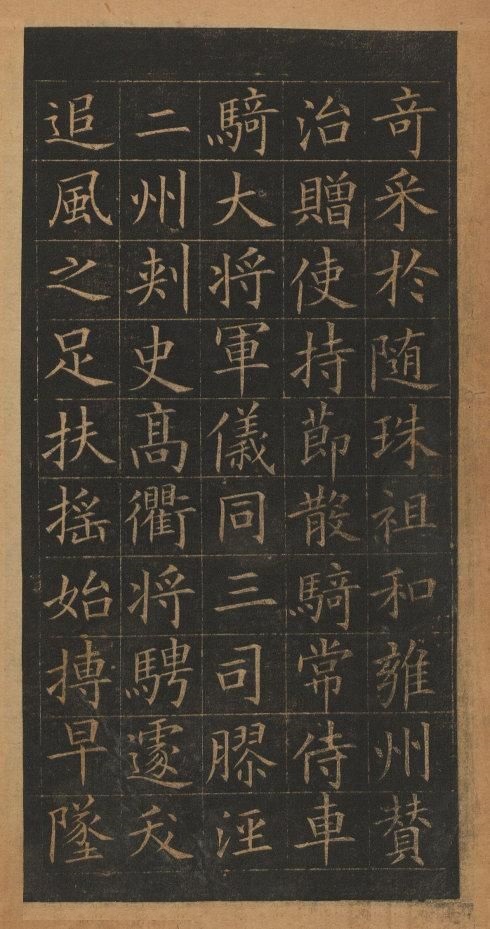 竒采於随珠祖和雍州賛
治贈使持節散騎常侍車
騎大将軍儀同三司膠涇
二州刺史髙衢将騁遽夭
追風之足扶揺始摶早墜